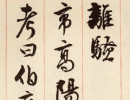 離騷
帝高陽
考曰伯